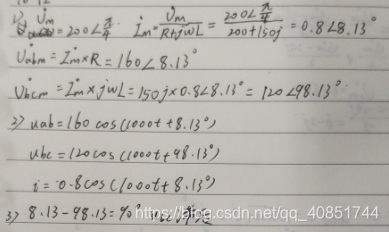 U̇m = 200∠π/4 İm = U̇m/(R+jwL) = 200∠π/4/(200+150j) = 0.8∠8.13°
U̇abm = İm×R = 160∠8.13°
U̇bcm = İm×jwL = 150j×0.8∠8.13° = 120∠98.13°
2) uab = 160cos(1000t+8.13°)
ubc = 120cos(1000t+98.13°)
i = 0.8cos(1000t+8.13°)
3) 8.13-98.13=90°
https://blog.csdn.net/qq_40851744